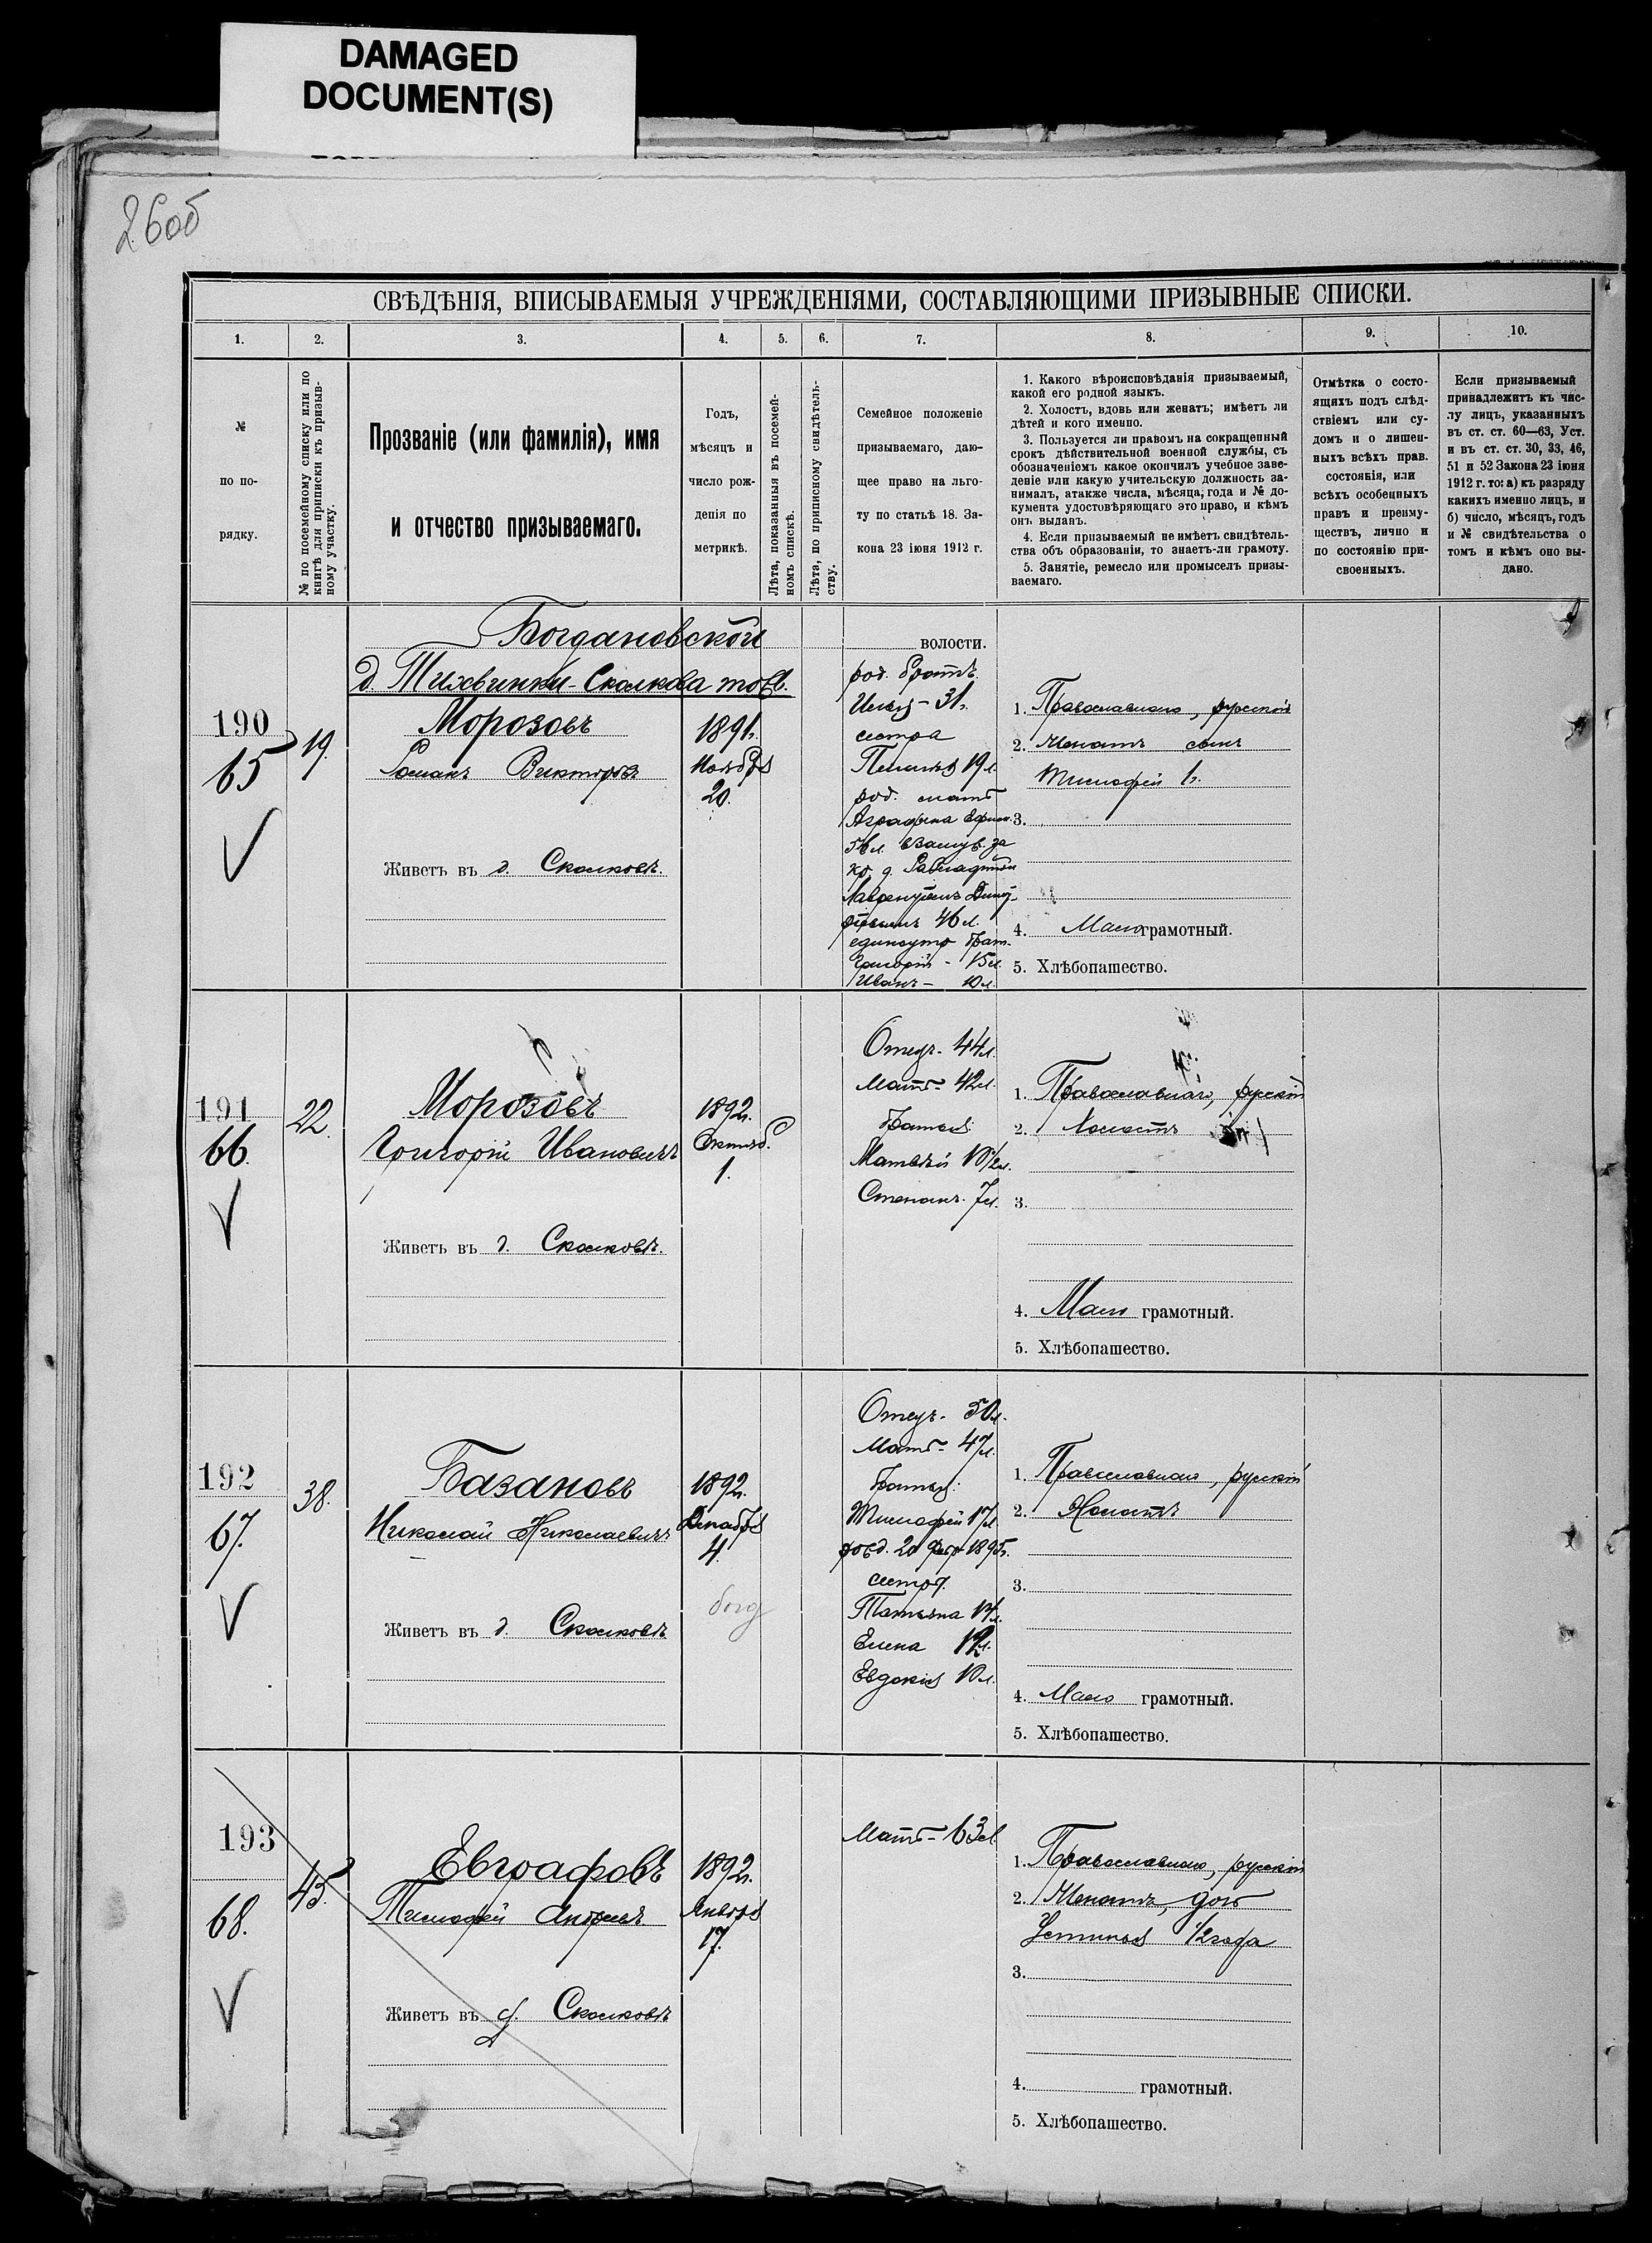 DAMAGED
DOCUMENT(S)
260б
СВѢДѢНІЯ, ВПИСЫВАЕМЫЯ УЧРЕЖДЕНІЯМИ, СОСТАВЛЯЮЩИМИ ПРИЗЫВНЫЕ СПИСКИ.
1. 2. 3. 4. 5. 6. 7. 8. 9. 10.
№
по по-
рядку.
№ по посемейному списку или по
книгѣ для приписки къ призыв-
ному участку.
Прозваніе (или фамилія), имя
и отчество призываемаго.
Годъ,
мѣсяцъ и
число рож-
денія по
метрикѣ.
Лѣта, показанныя въ посемей-
номъ спискѣ.
Лѣта, по приписному свидѣтель-
ству.
Семейное положеніе
призываемаго, даю-
щее право на льго-
ту по статьѣ 18. За-
кона 23 іюня 1912 г.
1. Какого вѣроисповѣданія призываемый,
какой его родной языкъ.
2. Холостъ, вдовъ или женатъ; имѣетъ ли
дѣтей и кого именно.
3. Пользуется ли правомъ на сокращенный
срокъ дѣйствительной военной службы, съ
обозначеніемъ какое окончилъ учебное заве-
деніе или какую учительскую должность за-
нималъ, атакже числа, мѣсяца, года и № до-
кумента удостовѣряющаго это право, и кѣмъ
онъ выданъ.
4. Если призываемый не имѣетъ свидѣтель-
ства объ образованіи, то знаетъ-ли грамоту.
5. Занятіе, ремесло или промыселъ призы-
ваемаго.
Отмѣтка о состо-
ящихъ подъ слѣд-
ствіемъ или су-
домъ и о лишен-
ныхъ всѣхъ прав.
состоянія, или
всѣхъ особенныхъ
правъ и преиму-
ществъ, лично и
по состоянію при-
своенныхъ.
Если призываемый
принадлежитъ къ чис-
лу лицъ, указанныхъ
въ ст. ст. 60—63, Уст.
и въ ст. ст. 30, 33, 46,
51 и 52 Закона 23 іюня
1912 г. то: а) къ разряду
какихъ именно лицъ, и
б) число, мѣсяцъ, годъ
и № свидѣтельства о
томъ и кѣмъ оно вы-
дано.
Богдановской волости.
д. Тихвинки-Сколкова тов.
190
65
19.
Морозовъ
Романъ Викторовъ
Живетъ въ д. Сколковѣ.
1891г.
Ноября
20.
род. братъ
31г.
сестра
19 л.
род. мать
Аграфена Ефим.
за
46 л.
единоутр. брат.
Григорій - 15 л.
Иванъ - 10 л.
1. Православнаго, русскій
2. Женатъ сынъ
Тимофей 1г.
3.
4. Мало грамотный.
5. Хлѣбопашество.
191
66.
22.
Морозовъ
Григорій Ивановичъ
Живетъ въ д. Сколковѣ.
1892г.
Октяб.
1.
Отецъ - 44 л.
Мать - 42 л.
Братья:
Матвѣй 10½ л.
Степанъ - 7 л.
1. Православнаго, русскій
2. Холостъ
3.
4. Мало грамотный.
5. Хлѣбопашество.
192
67.
38.
Базановъ
Николай Николаевичъ
Живетъ въ д. Сколковѣ
1892г.
Декабря
4.
богд
Отецъ - 50 л.
Мать - 47 л.
Братья:
Тимофей 17 л.
рожд. 20 фев 1895г.
сестры
Татьяна 14 л.
Елена 12 л.
Евдокія 10 л.
1. Православнаго, русскій
2. Холостъ
3.
4. Мало грамотный.
5. Хлѣбопашество.
193
68.
45.
Евграфовъ
Тимофей Андреевъ
Живетъ въ д. Сколковѣ
1892г.
Января
17.
Мать - 63 л.
1. Православнаго, русскій
2. Женатъ, дочь
Устинья ½ года
3.
4. грамотный.
5. Хлѣбопашество.